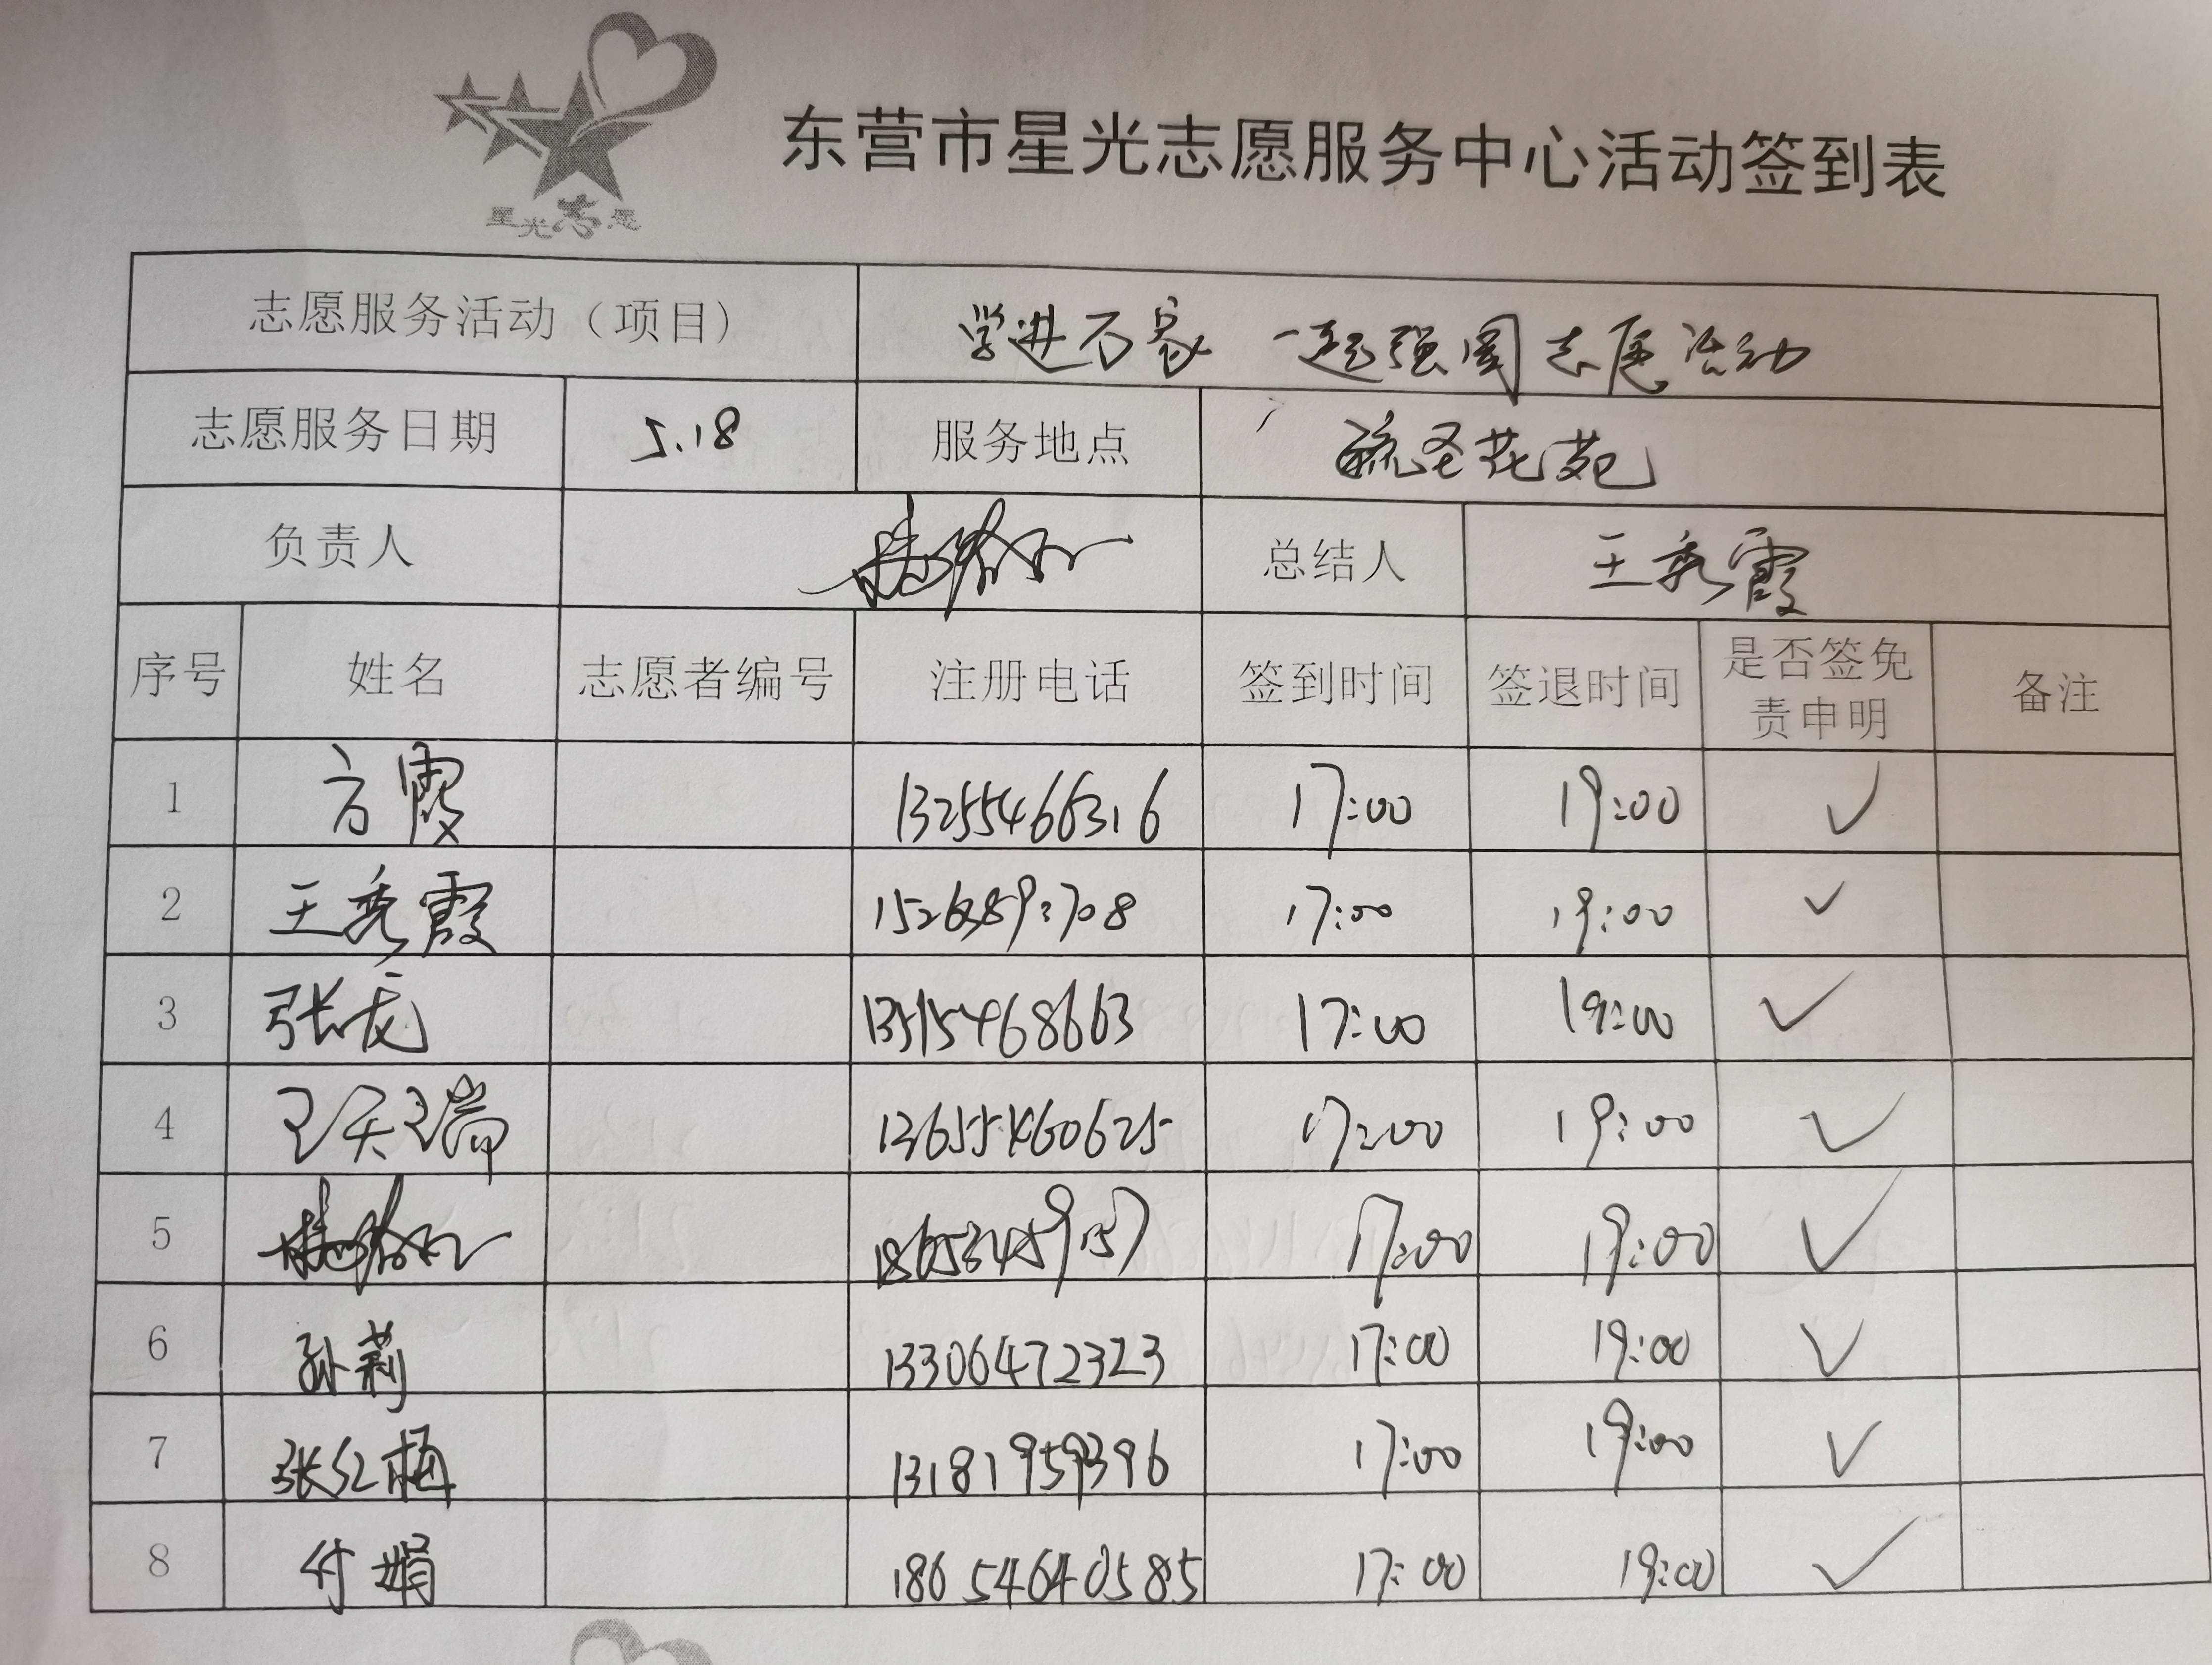 星光志愿
东营市星光志愿服务中心活动签到表
志愿服务活动（项目） 学进万家 一起强国志愿活动
志愿服务日期 5.18 服务地点 花苑
负责人 总结人 王秀霞
序号 姓名 志愿者编号 注册电话 签到时间 签退时间 是否签免责申明 备注
1 方霞 13255466316 17:00 19:00 ✓
2 王秀霞 17:00 19:00 ✓
3 张龙 13515468663 17:00 19:00 ✓
4 王天瑞 13655460625 17:00 19:00 ✓
5 17:00 19:00 ✓
6 孙莉 13306472323 17:00 19:00 ✓
7 张红梅 13181959396 17:00 19:00 ✓
8 付娟 18654640585 17:00 19:00 ✓